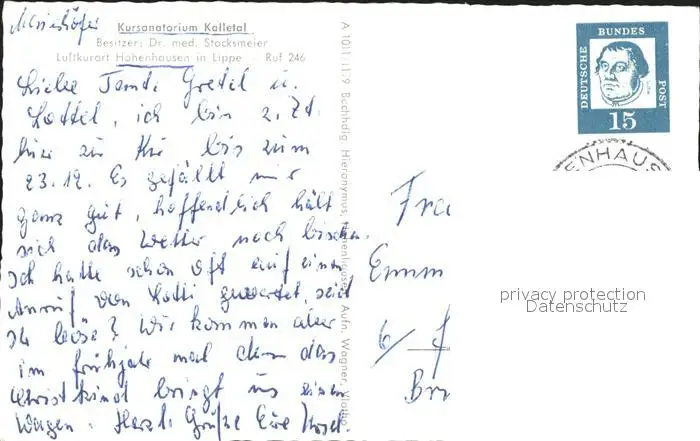 Kursanatorium Kalletal
Besitzer: Dr. med. Stocksmeier
Luftkurort Hohenhausen in Lippe - Ruf 246
Liebe Gretel u.
Lottel, ich bin z. Zt.
hier zur Kur bis zum
23.12. Es gefällt mir
ganz gut, hoffendlich hält
sich das Wetter noch bischen.
Ich hatte schon oft auf einen
Anruf von Lotti gewartet, seid
Ihr böse? Wir kommen aber
im Frühjahr mal denn das
Christkind bringt uns einen
Wagen. Herzl. Grüße Eure
A 1011 Buchhdlg. Hieronymus, Hohenhausen, Aufn. Wagner, Vlotho
DEUTSCHE BUNDES POST
15
ENHAUS
Fra
Emm
6/
Br
privacy protection
Datenschutz